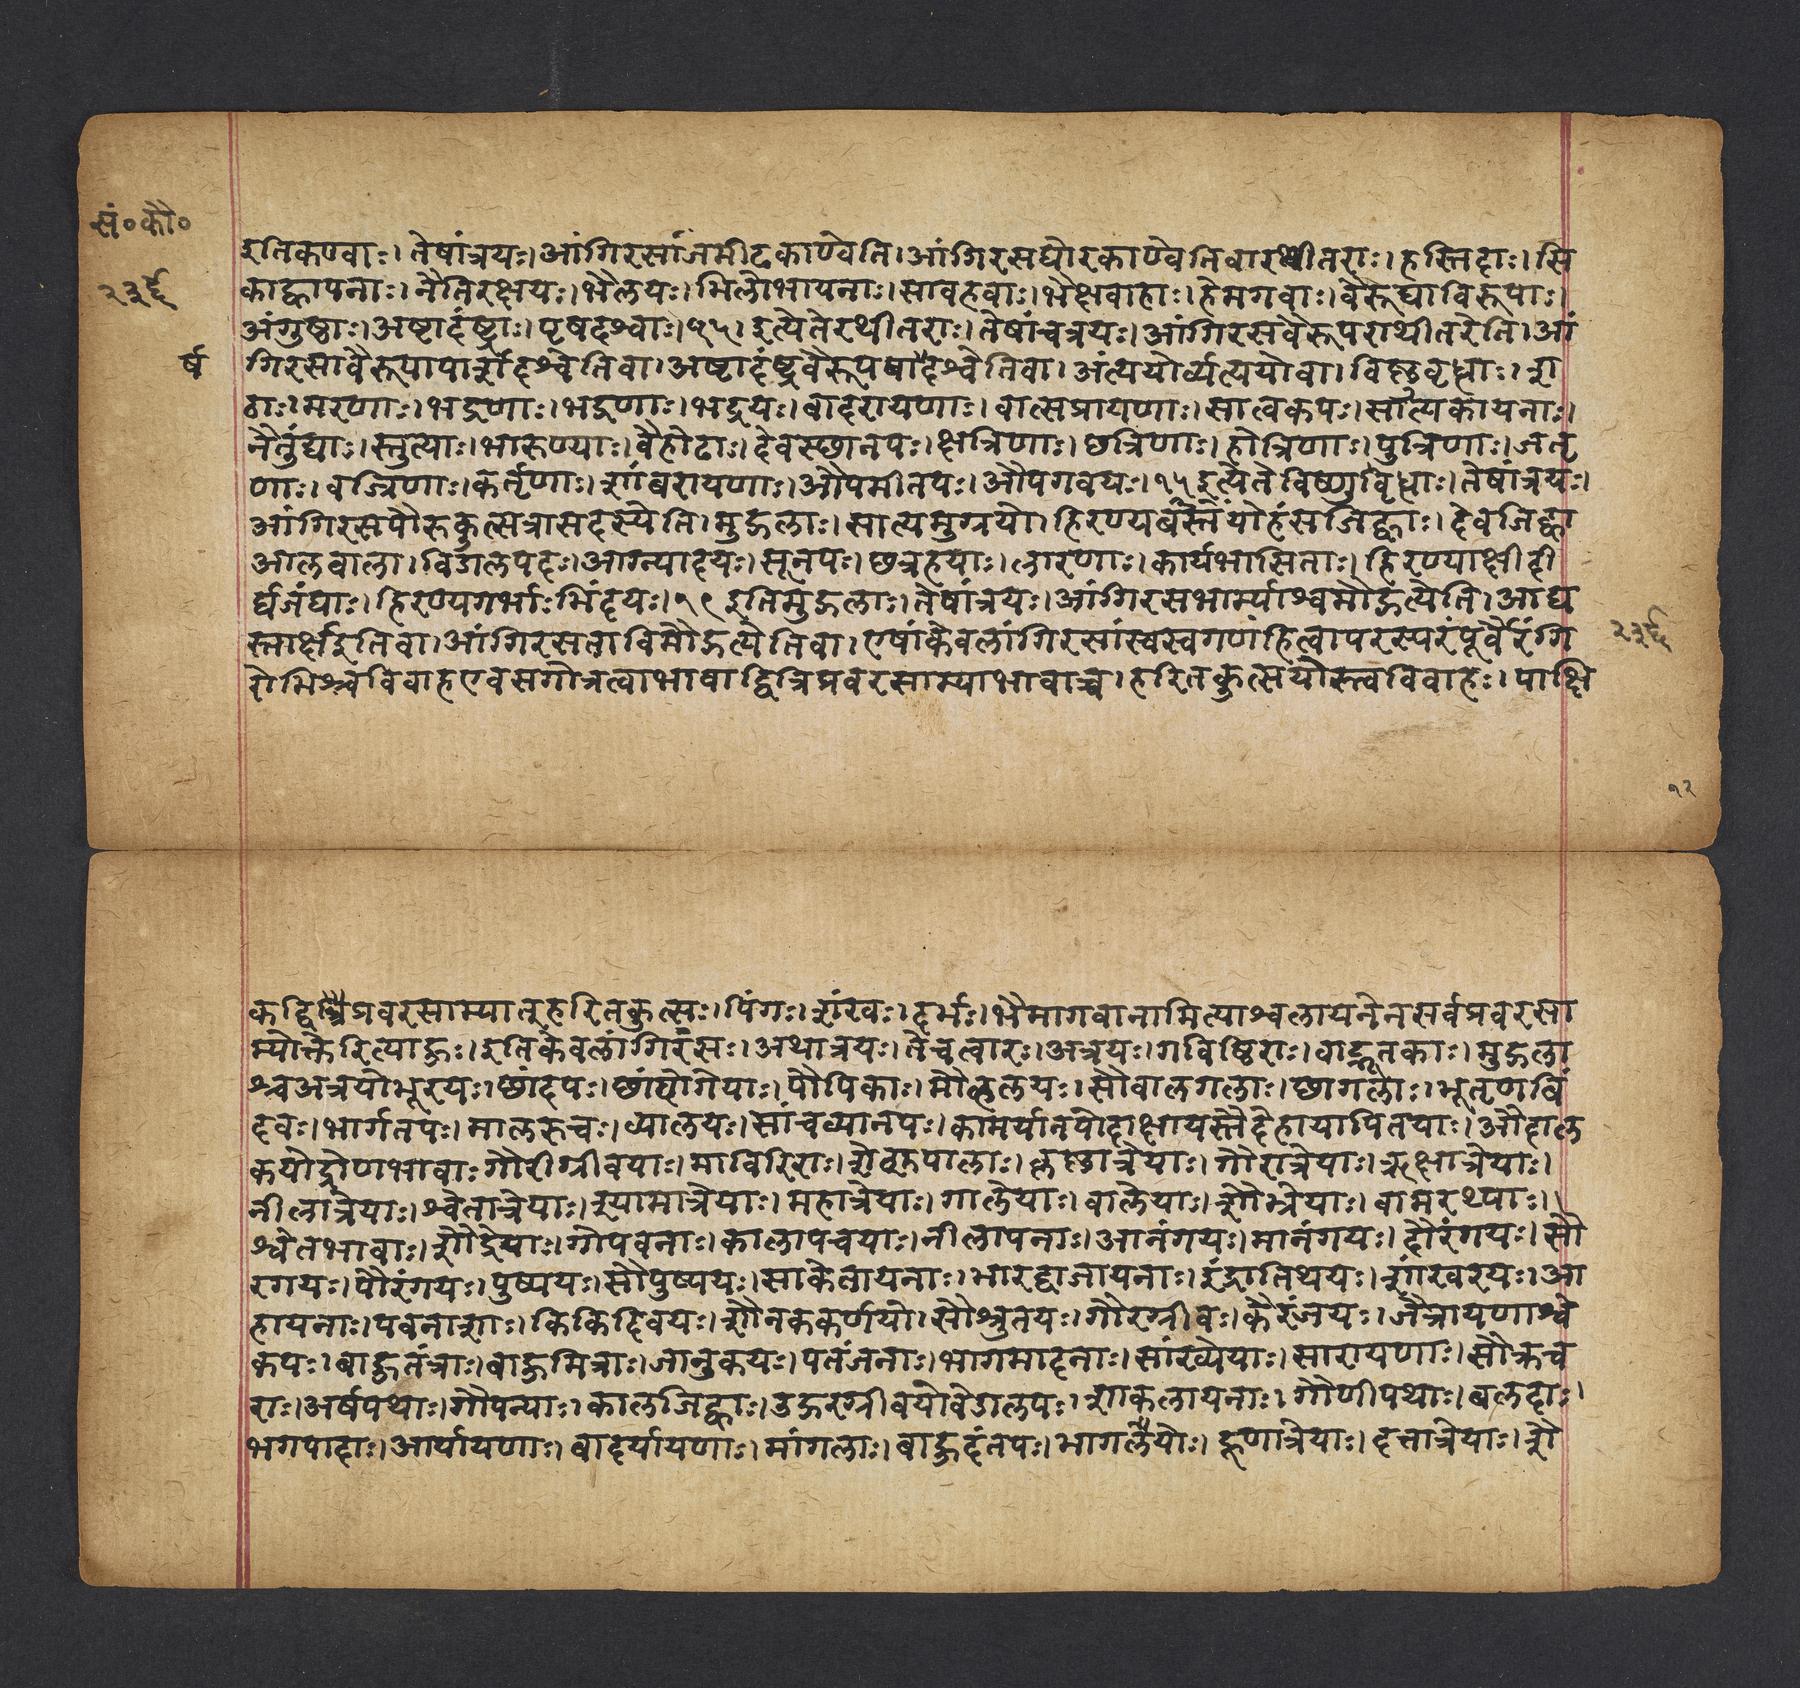 सं॰कौ॰
२३६
इतिकण्वाः। तेषांत्रयः। आंगिरसाजमीढकाण्वेति। आंगिरसघौरकाण्वेतिवारथीतराः। हस्तिदाः। सि
काह्वायनाः। नैतिरक्षयः। भैलयः। भिलोभायनाः। सावहवाः। भैक्षवाहाः। हेमगवाः। वैरूद्याविरूपाः।
अंगुष्ठाः। अष्टादंष्ट्राः। पृषदश्वाः। १५। इत्येतेरथीतराः। तेषांचत्रयः। आंगिरसवैरूपराथीतरेति। आं
र्ष
गिरसावैरूपापार्शदश्वेतिवा। अष्टादंष्ट्रवैरूपषादश्वेतिवा। अंत्ययोर्व्यत्ययोवा। विष्णुवृधाः। श
ठाः। मरणाः। भद्रणाः। भद्रणाः। भद्रयः। बादरायणाः। वात्सप्रायणाः। सात्वकपः। सात्यकायनाः।
नैतुंद्याः। स्तुत्याः। भारूण्याः। वैहोढाः। देवस्छानपः। क्षत्रिणाः। छत्रिणाः। होत्रिणाः। पुत्रिणाः। जतृ
णाः। वज्रिणाः। कर्तृणाः। शांबरायणाः। औपमीतयः। औपगवयः। १५ इत्येतेविष्णुवृधाः। तेषांत्रयः।
आंगिरसपौरुकुत्सत्रासदस्येति। मुद्गलाः। सात्यमुग्रयो। हिरण्यस्तंयोहंसजिह्वाः। देवजिह्वा
आलवाला। विडालपदः। आग्न्यादयः। सूनपः। छत्रहयाः। तारणाः। कार्यभासिताः। हिरण्याक्षीदी
र्घजंघाः। हिरण्यगर्भाः भिंदयः। १९ इतिमुद्गलाः। तेषांत्रयः। आंगिरसभार्म्याश्वमौद्गल्येति। आद्य
स्तार्क्षइतिवा। आंगिरसतावि‍मौद्गल्येतिवा। एषांकेवलांगिरसांस्वस्वगणंहित्वापरस्परंपूर्वैरंगि
२३६
रोभिश्चविवाहएवसगोत्रत्वाभाषाद्वित्रिप्रवरसाम्याभावाच्च। हरितकुत्सयोस्त्वविवाहः। पाक्षि
१२
कद्वित्र्यप्रवरसाम्यात् हरितकुत्सः। पिंगः। शंखः। दर्भः। भैमागवानामित्याश्वलायनेनसर्वप्रवरसा
म्योक्तेरित्याहुः। इतिकेवलांगिरसः। अथात्रयः। तेचत्वारः। अत्रयः। गविष्ठिराः। वाद्भूतकाः। मुद्गला
श्चअत्रयोभूरयः। छांदपः। छांद्योगेयाः। पौपिकाः। मौलयः। सौवालगलाः। छागलाः। भूतृणबिं
दवः। भार्गतपः। मालरुचः। व्यालयः। सांचव्यानपः। कामर्यातपोदाक्षायस्तैदेहायापितयाः। औदाल
कयोद्रोणभावाः गौरीग्रीवयाः। माविरिराः। शैवतपालाः। कृष्णात्रेयाः। गौरात्रेयाः। ऋक्षात्रेयाः।
नीलात्रेयाः। श्वेतात्रेयाः। श्यामात्रेयाः। महात्रेयाः। गालेयाः। वालेयाः। शौभ्रेयाः। वामरथ्याः।
श्वेतभावाः। शौद्रेयाः। गौपवनाः। कालापचयाः। नीलापनाः। आनंगयः। मानंगयः। दौरंगयः। सौ
रगयः। पौरंगयः। पुष्पयः। सौपुष्पयः। साकेतायनाः। भारद्वाजायनाः। इंद्रातिथयः। शांखरयः। आ
हायनाः। पवनाशाः। किकिदिवयः। शौनककर्णयो। सौश्रुतयः। गौरग्रीवः। कैरंजयः। जैत्रायणाश्वे
कपः। बाहुतंत्राः। बाहुमित्राः। जानुकयः। पतंजनाः। भागमादनाः। सांख्येयाः। सारायणाः। सौक्रच
राः। अर्षपथाः। गौपन्याः। कालजिह्वाः। उद्गरग्रीवयोवैडालपः। शाकलायनाः। गौणीपथाः। बलदाः।
भगपादाः। आर्यायणाः। वादर्यायणाः। मांगलाः। बाहुदंतपः। भागलेयोः। हूणात्रेयाः। दत्तात्रेयाः। शै